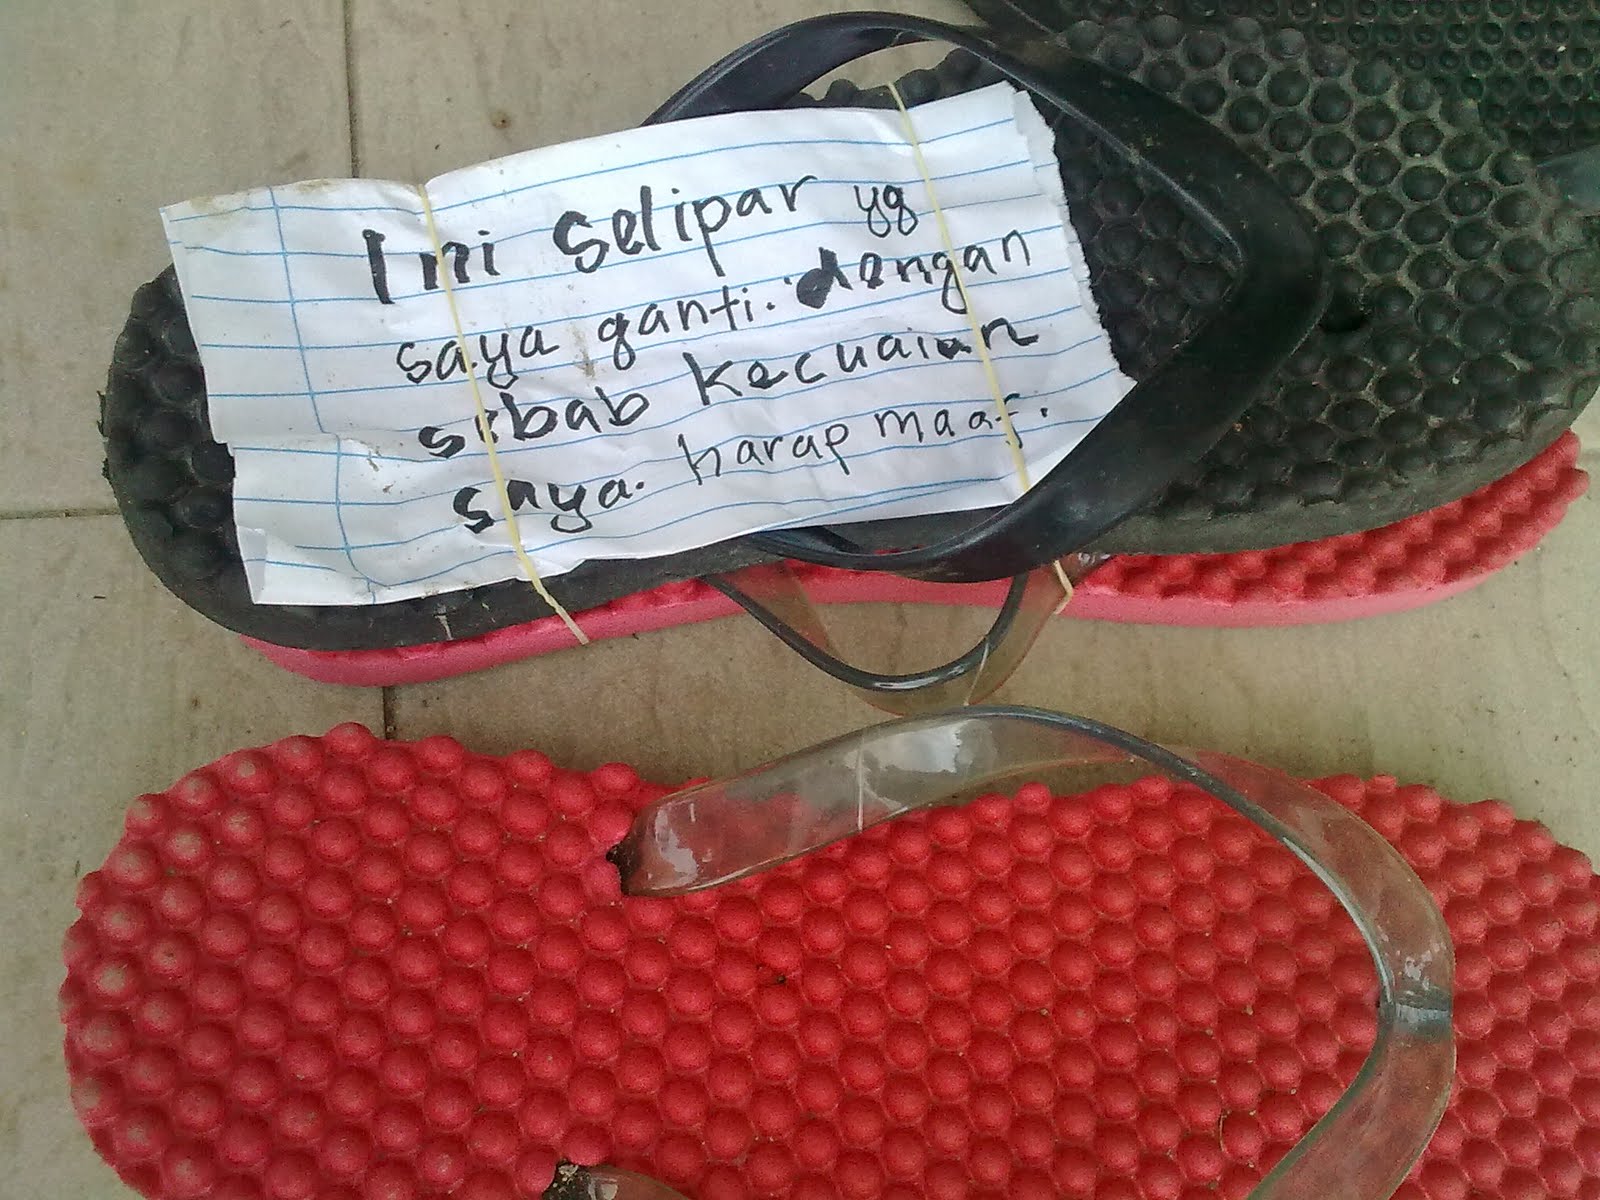 Ini Selipar yg
saya ganti. dengan
sebab kecuaian
saya. harap maaf.